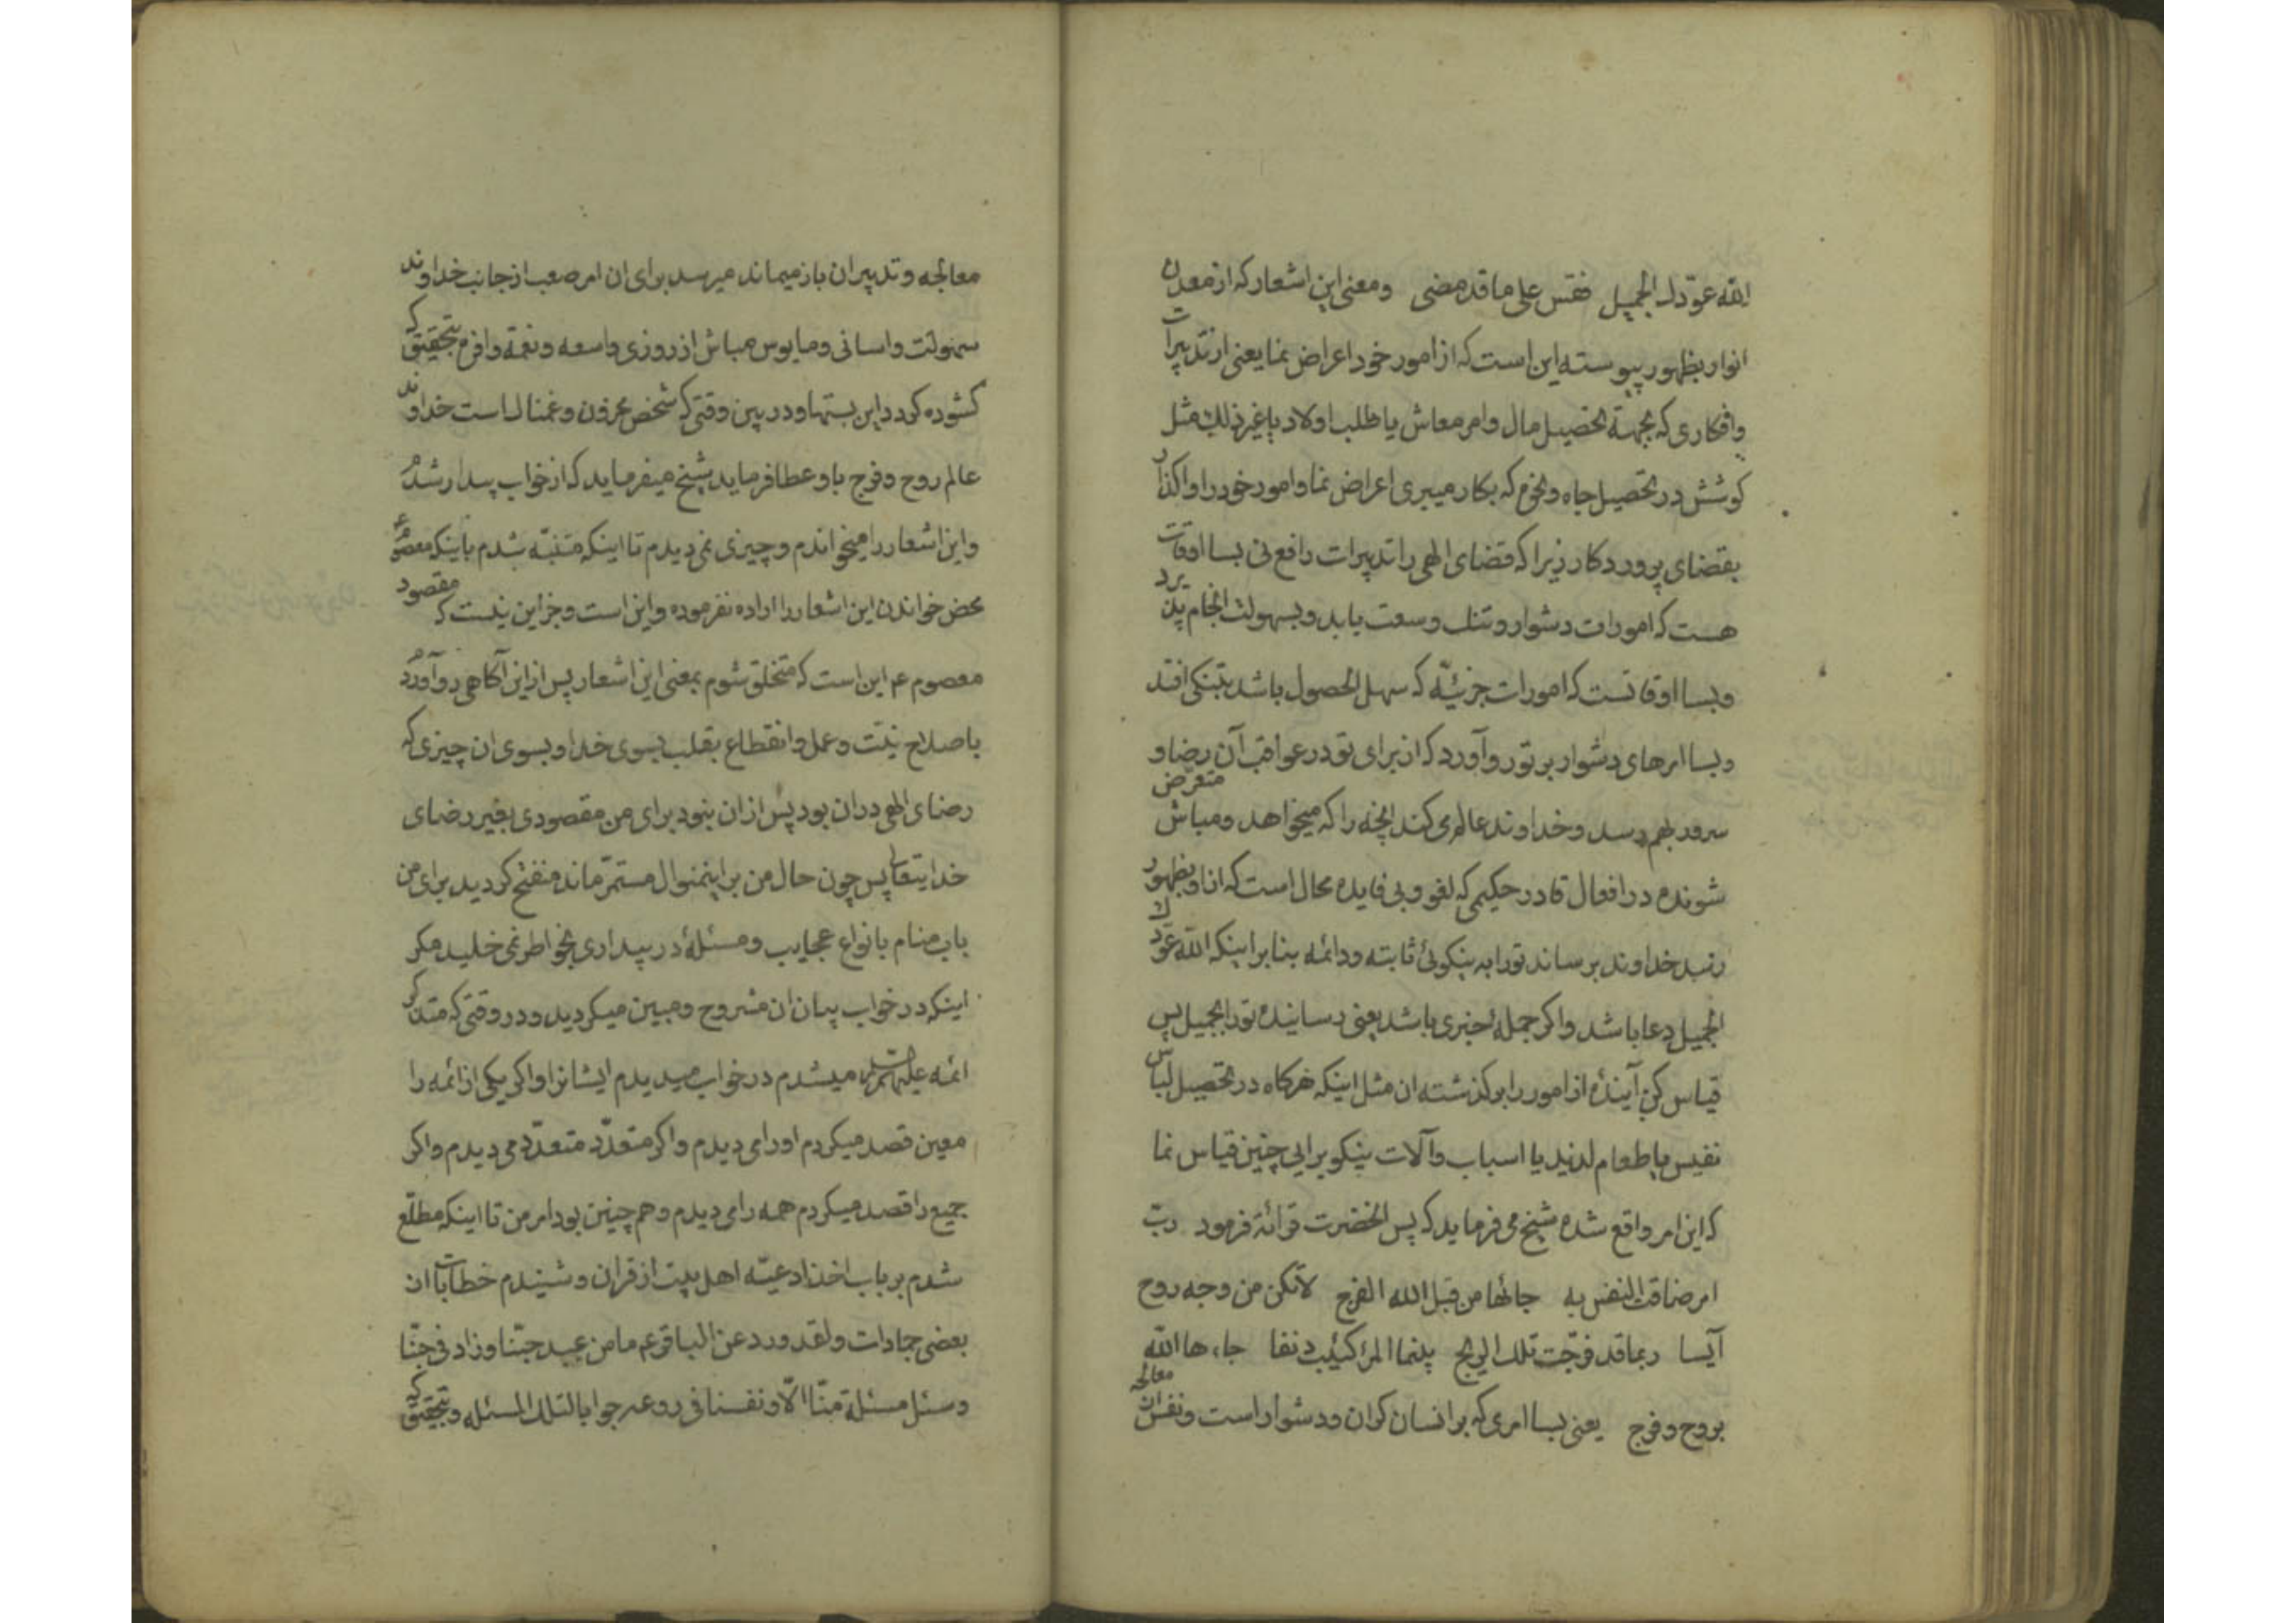 الله عوّدك الجمیل فقس علی ما قد مضی ومعنی این اشعار که از معدن
انوار بظهور پیوسته این است که از امور خود اعراض نما یعنی از تدبیرات
وافکاری که بجهة تحصیل مال وامر معاش یا طلب اولاد یا غیر ذلك مثل
کوشش در تحصیل جاه ونحوم که بکار میبری اعراض نما وامور خود را واکذار
بقضای پروردکار زیرا که قضای الهی را تدبیرات رافع نی بسا اوقات
هست که امورات دشوار وتنك وسعت یابد وبسهولت انجام پذیرد
وبسا اوقاتست که امورات جزئیّه که سهل الحصول باشد بتنکی افتد
وبسا امرهای دشوار بر تو رو آورد که از برای تو در عواقب آن رضا و
سرور بهم رسد وخداوند عالم می کند انچه را که میخواهد ومباش متعرّض
شونده در افعال قادر حکیمی که لغو وبی فایده محال است که از او بظهور
رسد خداوند برساند تو را به نیکوئی ثابته ودائمه بنا بر اینکه الله عوّدك
الجمیل دعا باشد واکر جملهٔ خبری باشد یعنی رسانیده تو را بجمیل پس
قیاس کن آیندهٔ از امور را بر کذشته ان مثل اینکه هرکاه در تحصیل لباس
نفیس یا طعام لذیذ یا اسباب وآلات نیکو برایی چنین قیاس نما
که این امر واقع شده شیخ می فرماید که پس انحضرت قرائة فرمود ربّ
امر ضاقت النفس به جائها من قبل الله الفرج لا تکن من وجه روح
آیسا ربما قد فرّجت تلك الریج بینما المرٔ کئیب دنفا جاءها الله
بروح وفرج یعنی بسا امری که بر انسان کران ودشوار است ونفس از معالجه
معالجه وتدبیر ان باز میماند میرسد برای ان امر صعب از جانب خداوند
سهولت واسانی ومایوس مباش از روزی واسعه ونعمة وافره بتحقیق که
کشوده کردد این بستها ودر بین وقتی که شخص محزون وغمناك است خداوند
عالم روح وفرج باو عطا فرماید شیخ میفرماید که از خواب بیدار شدم
واین اشعار را میخواندم وچیزی نمی دیدم تا اینکه متنبّه شدم باینکه معصوم ع
محض خواندن این اشعار را اراده نفرموده واین است وجز این نیست که مقصود
معصوم ع این است که متخلق شوم بمعنی این اشعار پس از این آکاهی رو آوردم
باصلاح نیّت وعمل وانقطاع بقلب بسوی خدا وبسوی ان چیزی که
رضای الهی در ان بود پس از ان نبود برای من مقصودی بغیر رضای
خدایتعالی پس چون حال من بر اینمنوال مستمرّ ماند منفتح کردید برای من
باب منام بانواع عجایب ومسئلهٔ در بیداری بخواطر نمی خلید مکر
اینکه در خواب بیان ان مشروح ومبین میکردید ودر وقتی که متذکر
ائمه علیهم السلام میشدم در خواب میدیدم ایشانرا واکر یکی از ائمه را
معین قصد میکردم او را می دیدم واکر متعدّد متعدّد می دیدم واکر
جمیع را قصد میکردم همه را می دیدم وهم چنین بود امر من تا اینکه مطلّع
شدم بر باب اخذ ادعیّه اهل بیت از قران وشنیدم خطابات از
بعضی جمادات ولقد ورد عن الباقر ع ما من عبد حبّنا وزاد فی حبّنا
وسئل مسئلة منّا الّا ونفسنا فی روعه جوابا لتلك المسئله وبتحقیق که